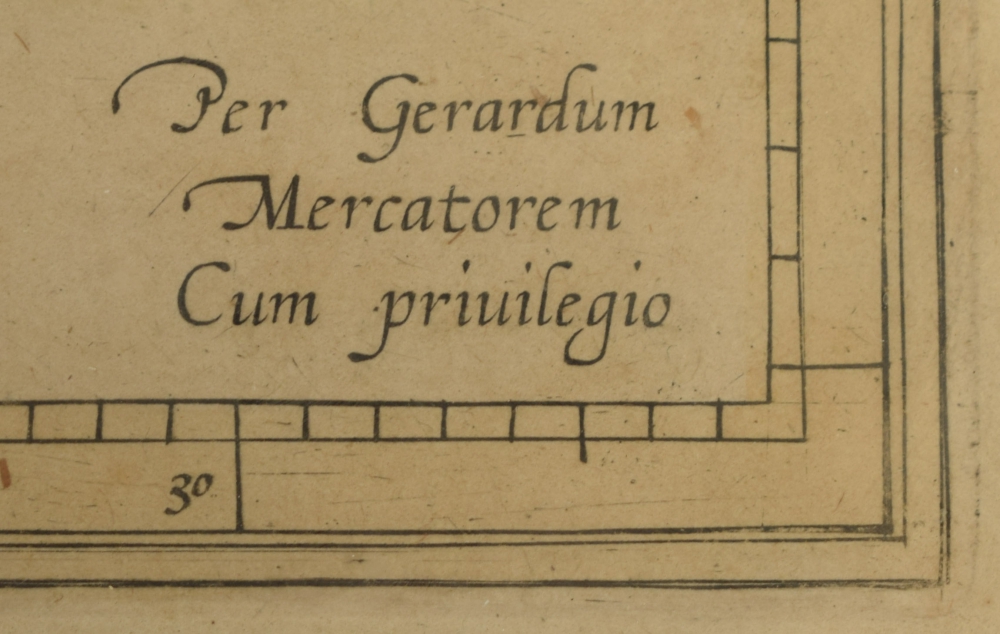 Per Gerardum
Mercatorem
Cum priuilegio
30